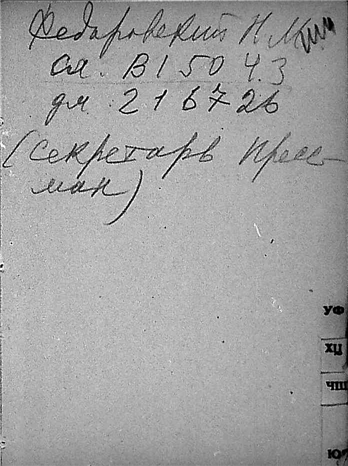 Федоровский Н. М.
сл. В 1 50 43
дм. 2 1 67 26
(Секретарь Пресс-
ман)
УФ
ХЦ
ЧШ
Ю